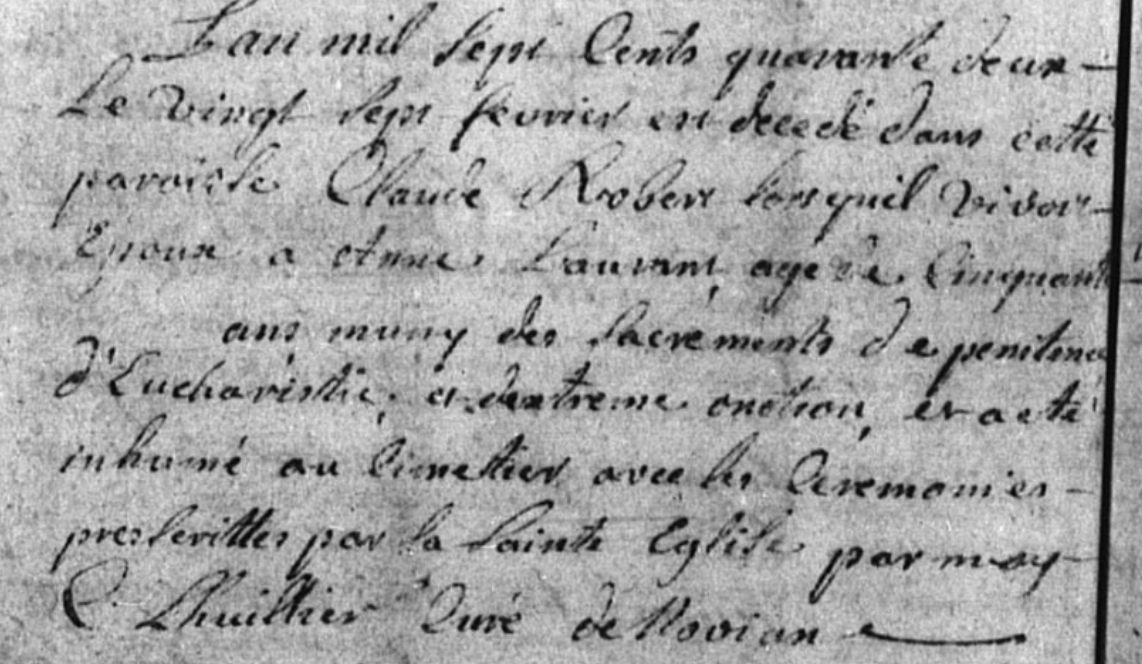 L'an mil sept Cents quarante deux –
Le vingt sept fevrier est decedé dans cette
paroisse Claude Robert lorsquil vivoit –
Epoux a Anne Laurant, agé de Cinquante
ans muny des sacrements de penitence
d'Eucharistie, et dextreme onction, et a eté
inhumé au Cimetier avec les Ceremonies –
presscrittes par la sainte Eglise par moy –
C Lhuillier Curé de Novian